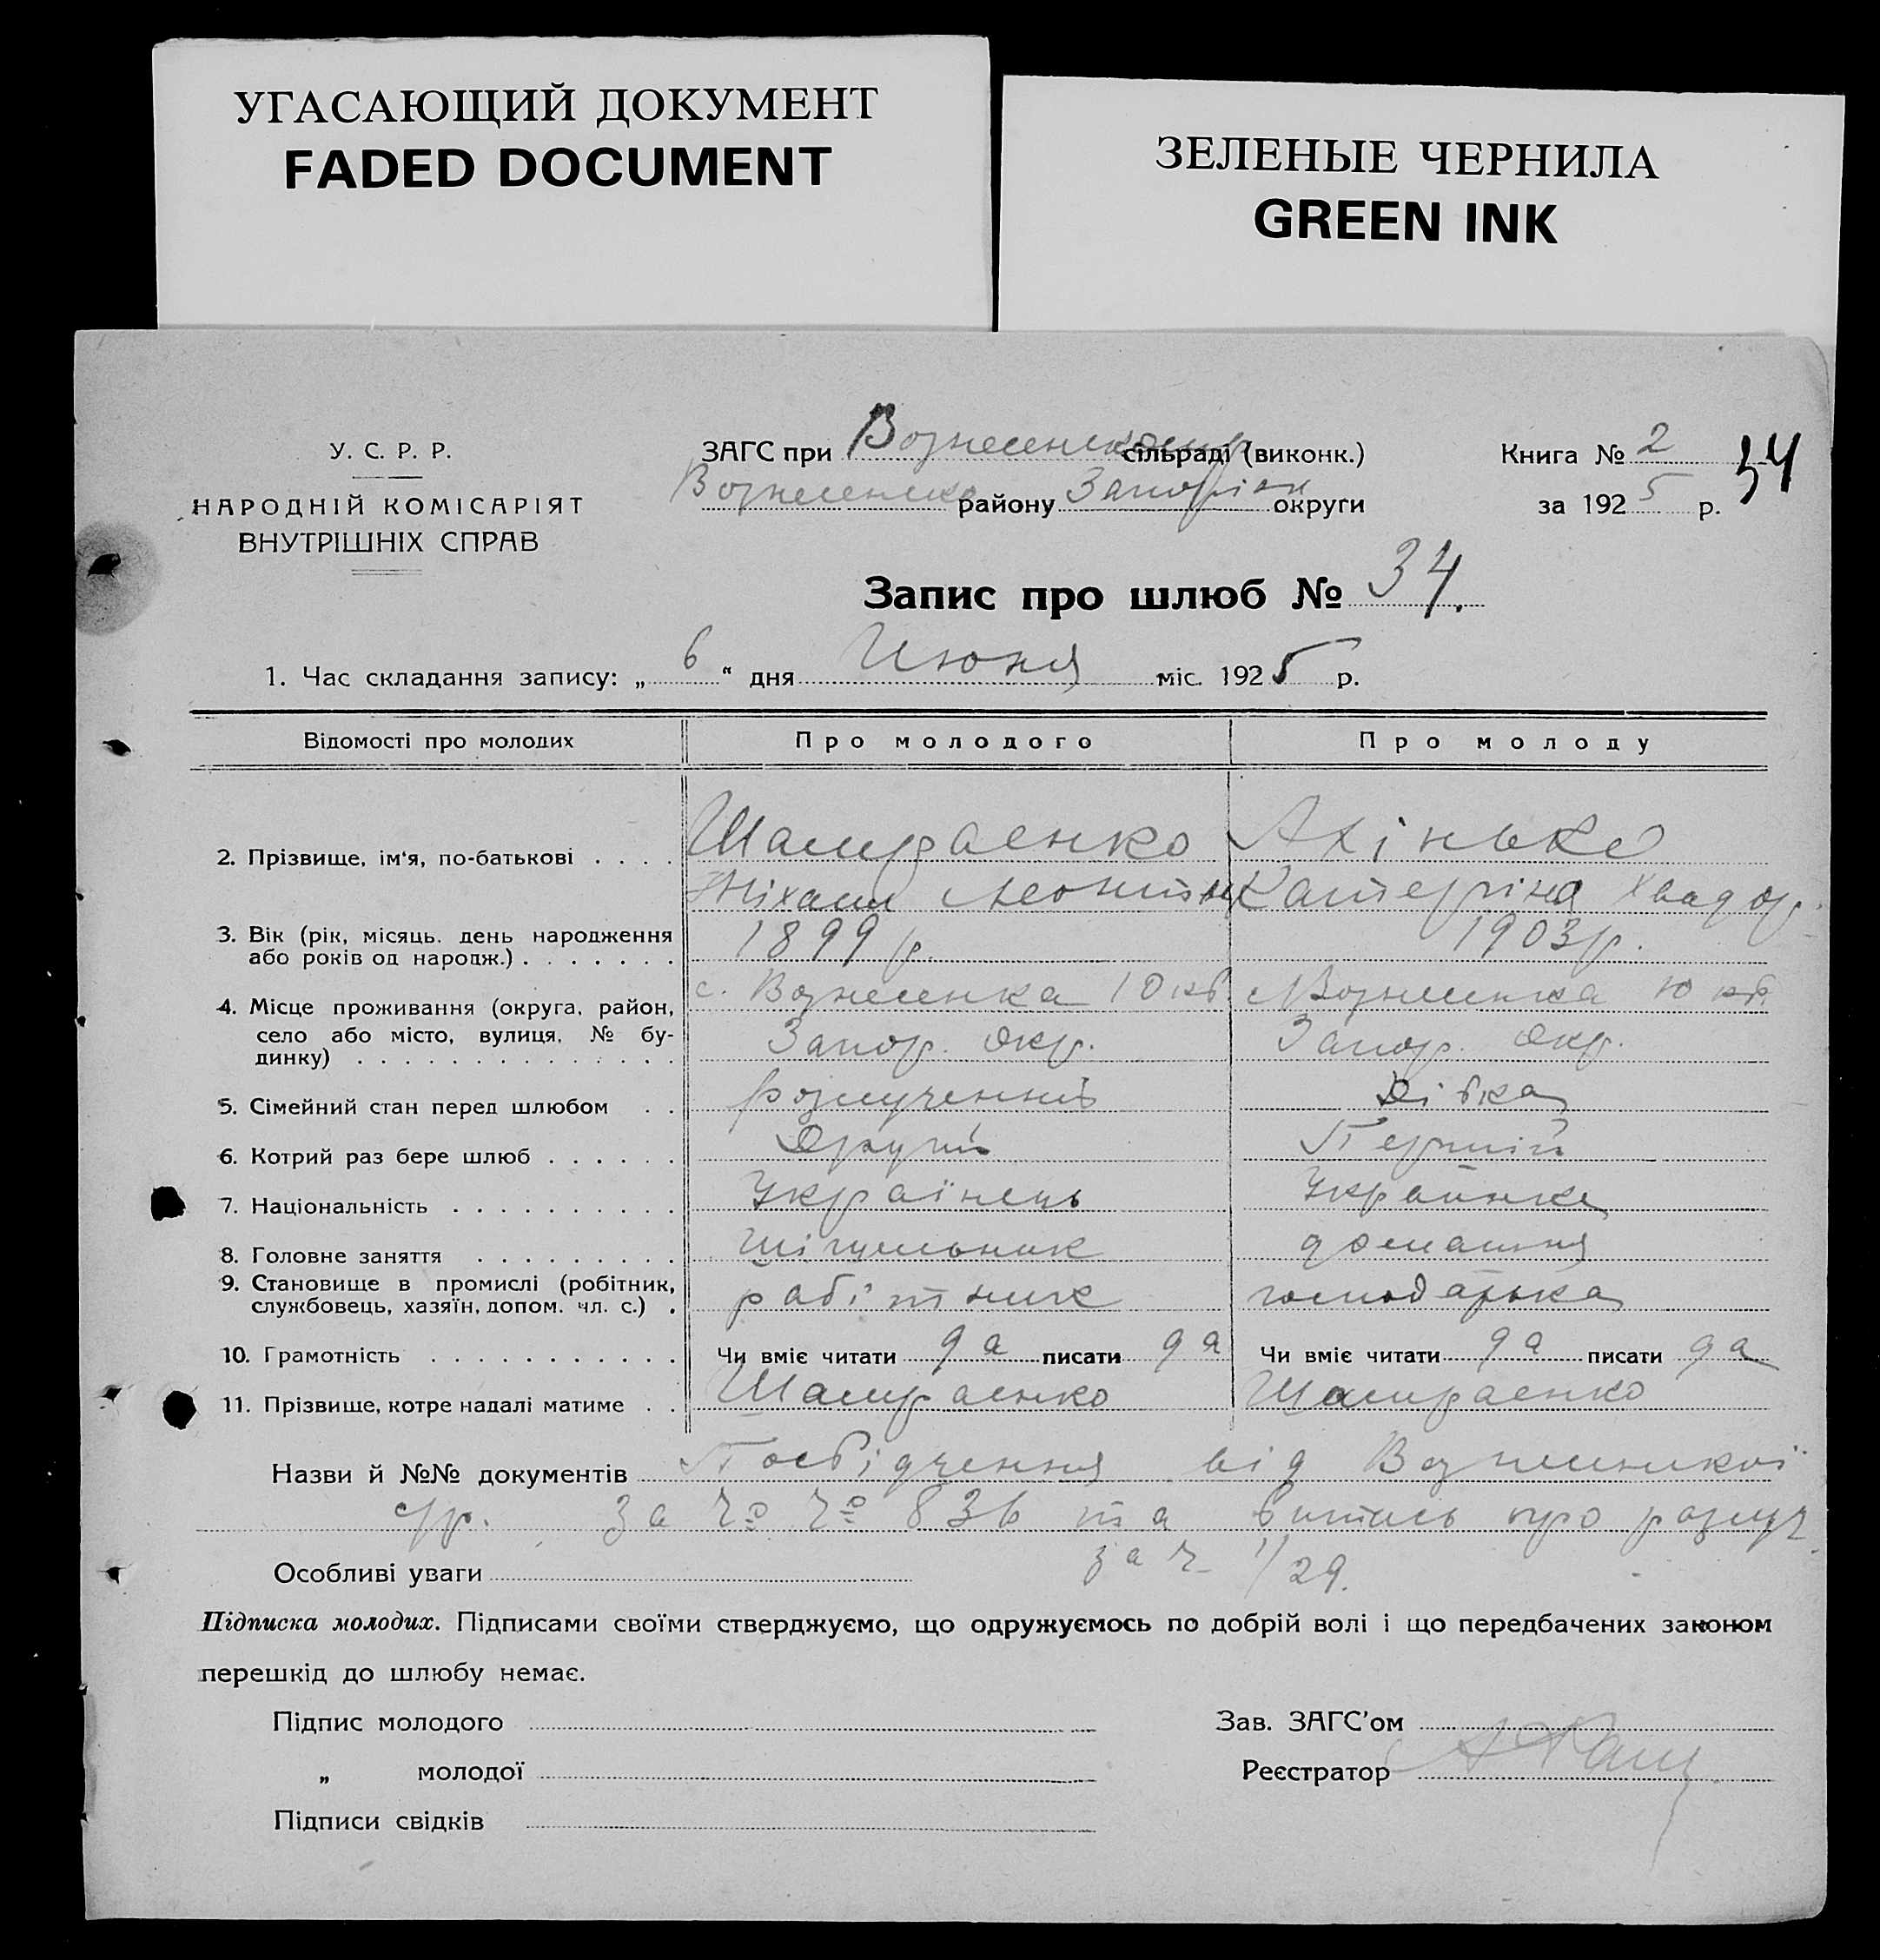 УГАСАЮЩИЙ ДОКУМЕНТ
FADED DOCUMENT
ЗЕЛЕНЫЕ ЧЕРНИЛА
GREEN INK
У. С. Р. Р.
НАРОДНІЙ КОМІСАРІЯТ
ВНУТРІШНІХ СПРАВ
ЗАГС при Вознесенск сільраді (виконк.)
Вознесенско району Запоріж округи
Книга № 2
за 1925 р.
34
Запис про шлюб № 34.
1. Час складання запису: „ 6 “ дня Июня міс. 1925 р.
Відомості про молодих Про молодого Про молоду
2. Прізвище, ім'я, по-батькові . . . . Шамраенко Ахінько
Міхаил Леонтий Катеріна Хвадор.
3. Вік (рік, місяць. день народження або років од народж.) . . . . . . . 1899 р. 1903 р.
4. Місце проживання (округа, район, село або місто, вулиця, № будинку) . . . . . . . . . . . . . с. Вознесенка 10 кв. с. Вознесенка 10 кв.
Запор. окр. Запор. окр.
5. Сімейний стан перед шлюбом . . розлученний Дівка
6. Котрий раз бере шлюб . . . . . . Другий Перший
7. Національність . . . . . . . . . . Українець Украинка
8. Головне заняття . . . . . . . . . домашня
9. Становище в промислі (робітник, службовець, хазяїн, допом. чл. с.) . рабітник господарька
10. Грамотність . . . . . . . . . . . Чи вміє читати да писати да Чи вміє читати да писати да
11. Прізвище, котре надалі матиме . . Шамраенко Шамраенко
Назви й №№ документів Посвідчення від Вознесенскої
с/р. за № № 836 та витись про розлуч.
за № 1/29.
Особливі уваги
Підписка молодих. Підписами своїми стверджуємо, що одружуємось по добрій волі і що передбачених законом
перешкід до шлюбу немає.
Підпис молодого
Зав. ЗАГС'ом
„ молодої
Реєстратор
Підписи свідків